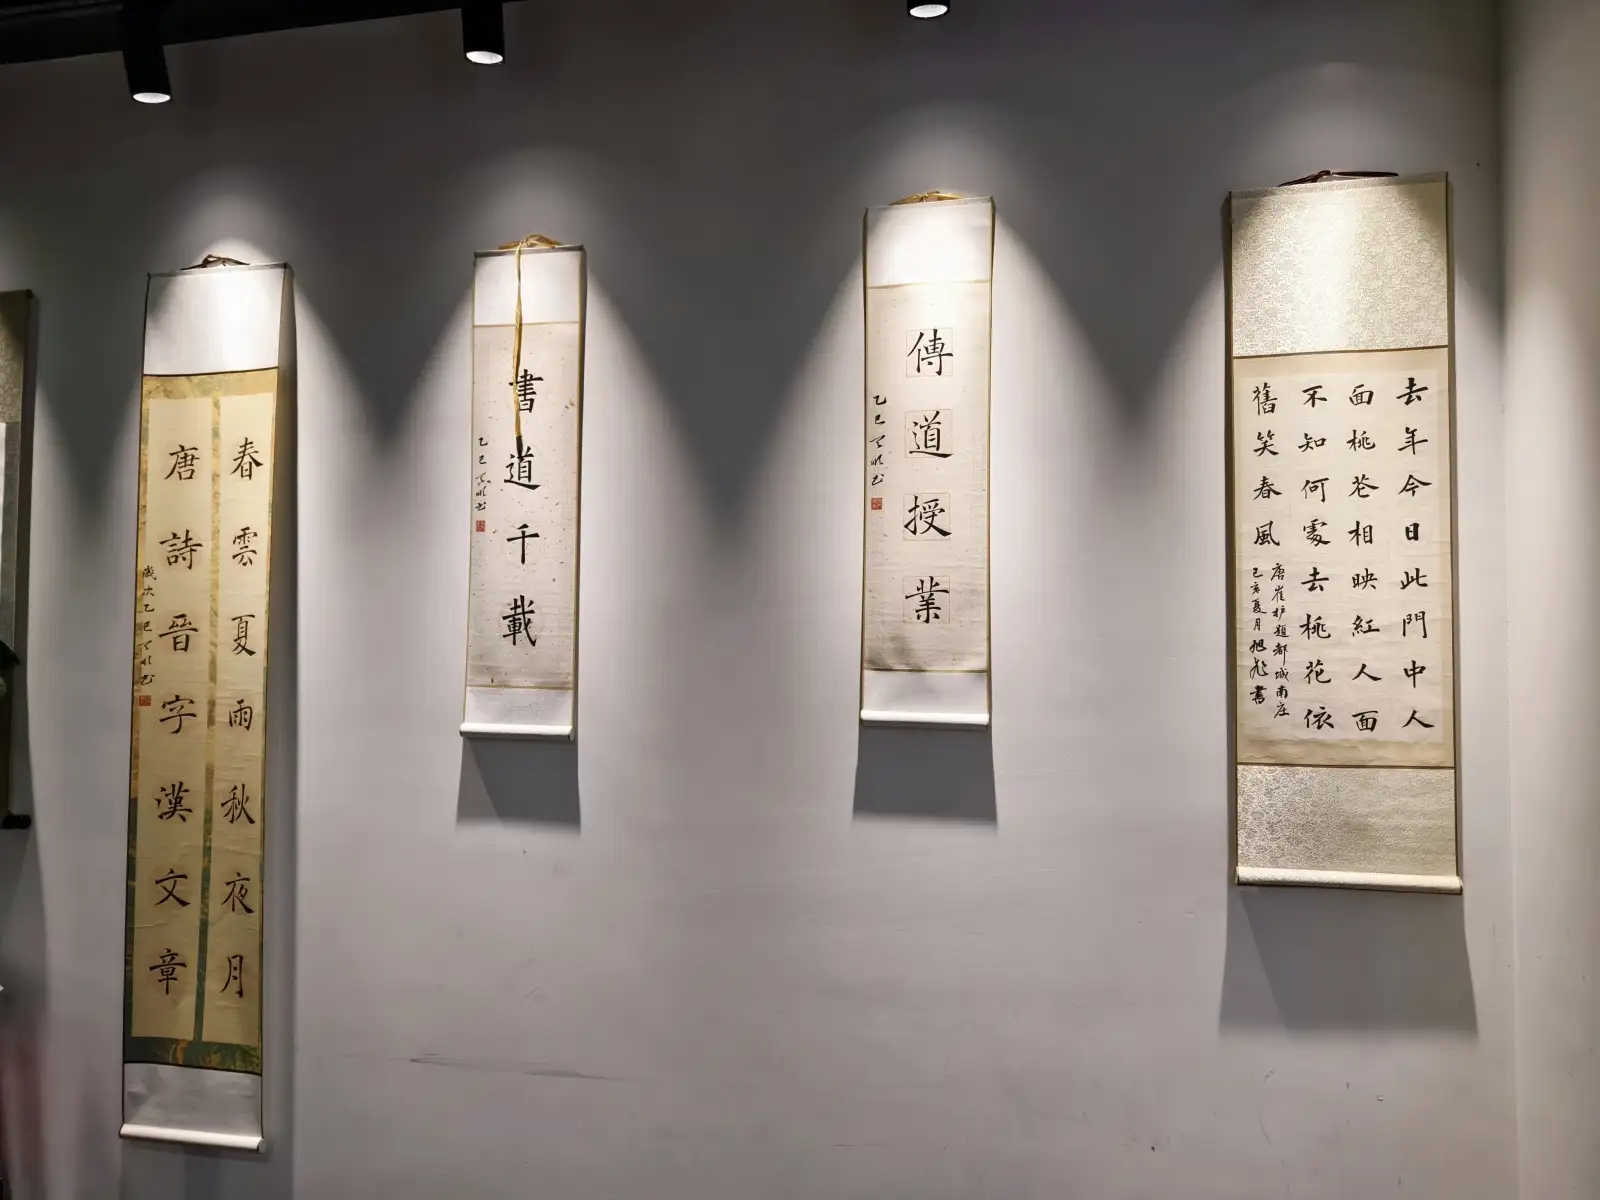 去年今日此門中人
面桃芲相映紅人面
不知何處去桃花依
舊笑春風
唐崔护題都城南庄
己亥夏月旭彪書
傳道授業
乙巳
書道千載
乙巳
春雲夏雨秋夜月
唐詩晉字漢文章
歲次乙巳